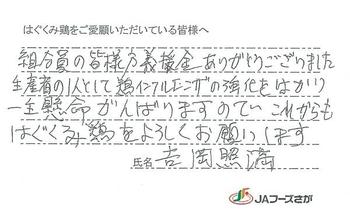 はぐくみ鶏をご愛願いただいている皆様へ
組合員の皆様方義援金ありがとうございました
生産者の1人として鶏インフルエンザの強化をはかり
一生懸命がんばりますのでい これからも
はぐくみ鶏をよろしくお願いします
氏名 吉岡照満
JAフーズさが